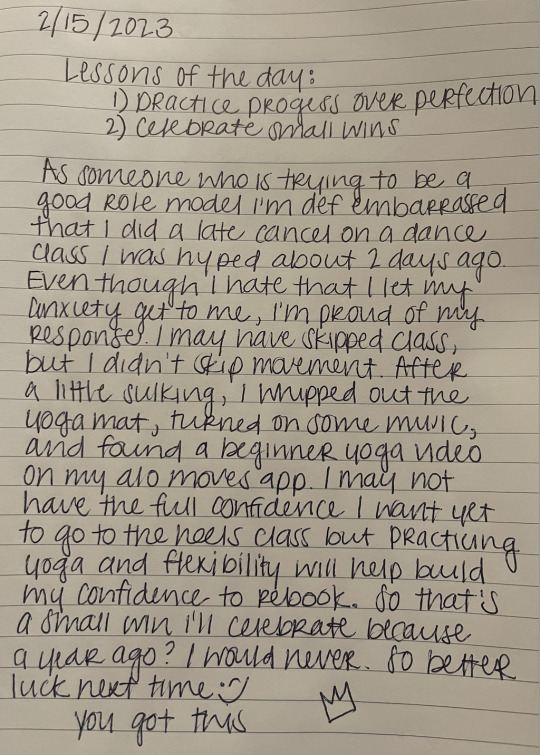 2/15/2023
Lessons of the day:
1) Practice progess over perfection
2) Celebrate small wins
As someone who is trying to be a
good role model i'm def embarrassed
that I did a late cancel on a dance
class I was hyped about 2 days ago.
Even though I hate that I let my
anxiety get to me, I'm proud of my
response. I may have skipped class,
but I didn't skip movement. After
a little sulking, I whipped out the
yoga mat, turned on some music,
and found a beginner yoga video
on my alo moves app. I may not
have the full confidence I want yet
to go to the heels class but practicing
yoga and flexibility will help build
my confidence to rebook. So that's
a small win i'll celebrate because
a year ago? I would never. So better
luck next time :)
you got this